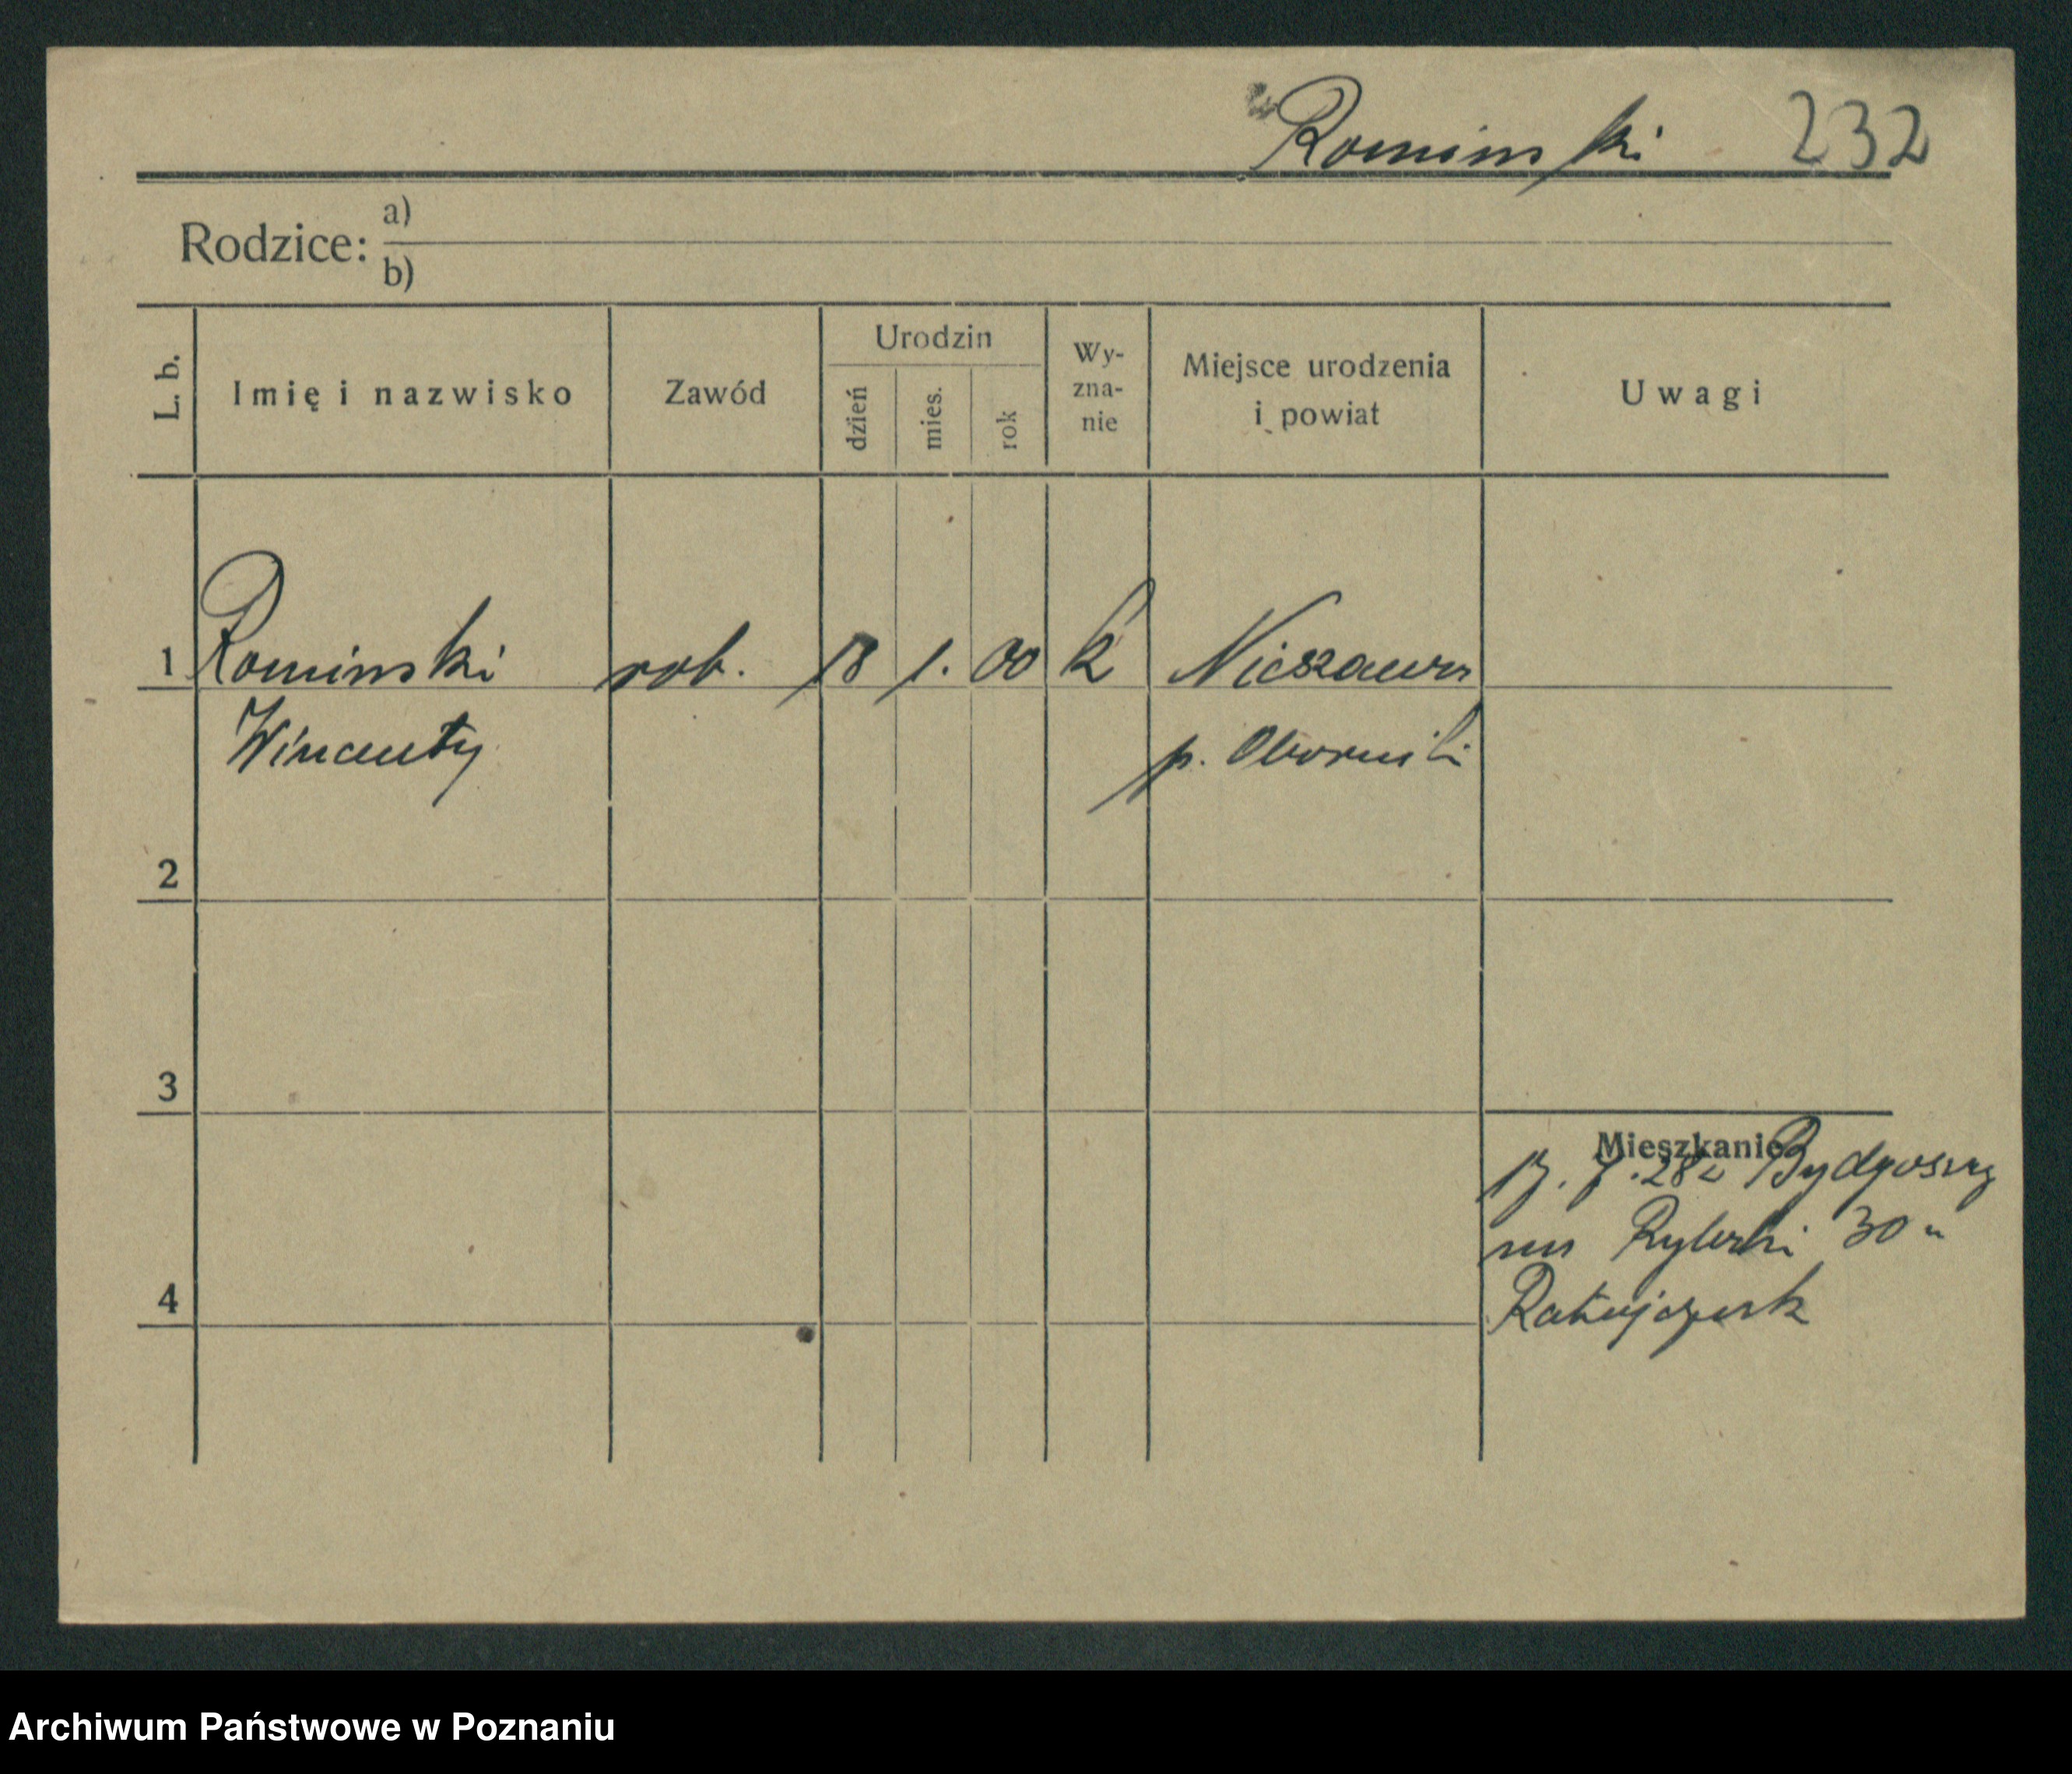 Rominski 232
Rodzice: a)
b)
L. b. Imię i nazwisko Zawód Urodzin dzień mies. rok Wy-zna-nie Miejsce urodzenia i powiat Uwagi
1 Rominski rob. 18 1. 00 k Nieszawa
Wincenty p. Oborniki
2
3
Mieszkanie
7.28 z Bydgoszczy
na Rybaki 30
4
Ratajczak
Archiwum Państwowe w Poznaniu